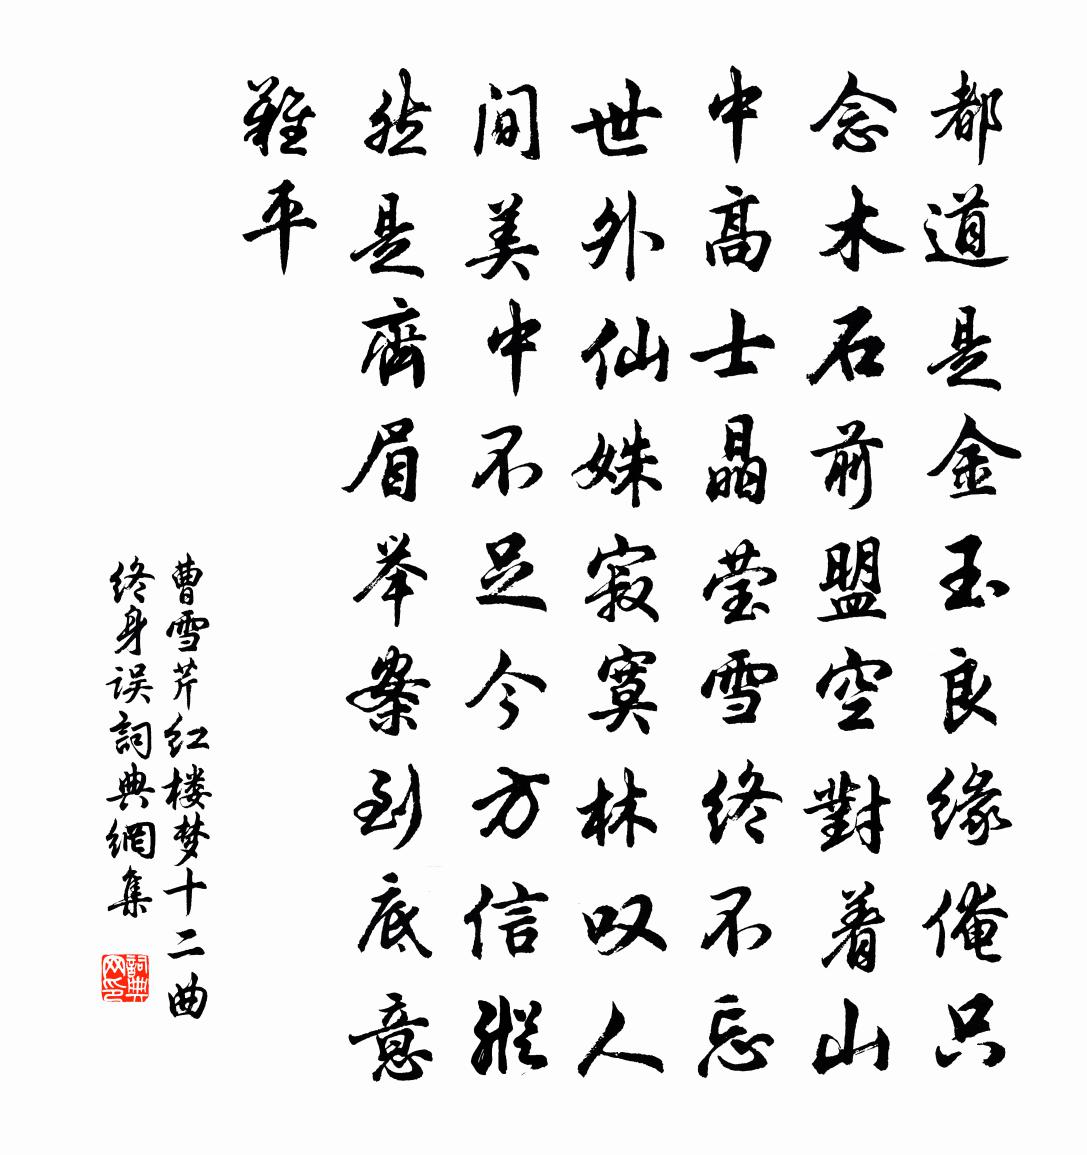 都道是金玉良缘俺只
念木石前盟空對着山
中高士晶莹雪终不忘
世外仙姝寂寞林叹人
间美中不足今方信縱
然是齊眉举案到底意
難平
曹雪芹红楼梦十二曲
终身误詞典網集
詞典
网印